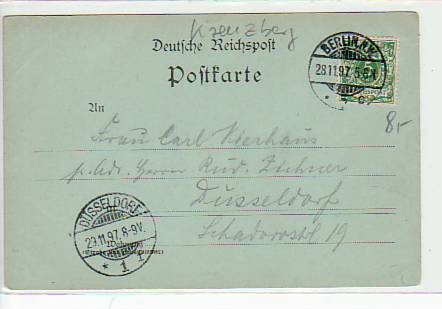 Kreuzberg
Deutsche Reichspost
Postkarte
BERLIN.N.W.
28.11.97.
5
An
8,-
Frau Carl Vierhaus
p. Adr. Herrn Rud. Zichner
Düsseldorf
Schadowstr 19
DÜSSELDORF
29.11.97.8-9V.
* 1 1